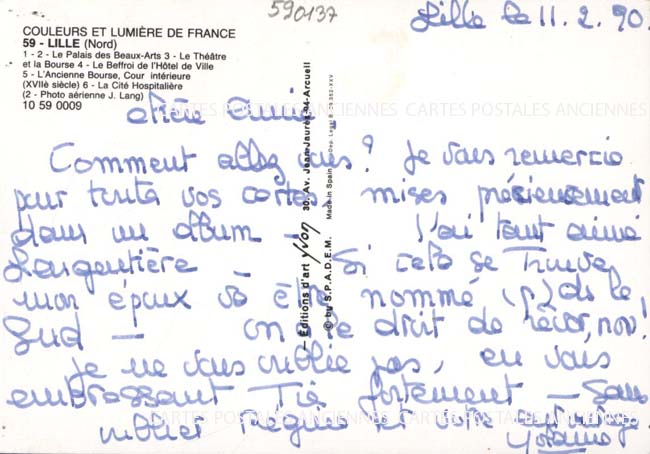 590137
COULEURS ET LUMIÈRE DE FRANCE
59 - LILLE (Nord)
1 - 2 - Le Palais des Beaux-Arts 3 - Le Théâtre
et la Bourse 4 - Le Beffroi de l'Hôtel de Ville
5 - L'Ancienne Bourse, Cour intérieure
(XVIIè siècle) 6 - La Cité Hospitalière
(2 - Photo aérienne J. Lang)
10 59 0009
Lille le 11. 2. 90.
CARTES POSTALES ANCIENNES CARTES POSTALES ANCIENNES
Chère
Comment allez vous ? Je vous remercie
pour toutes vos cartes, mises précieusement
dans un album - J'ai tant aimé
Largentière - Si cela se trouve
mon époux va être nommé (?) ds le
Sud - on a le droit de rêver, non!
Je ne vous oublie pas, en vous
embrassant Très fortement - Sans
oublier Régine et votre
— Editions d'art Yvon 30, Av. Jean-Jaurès 94-Arcueil
© by S.P.A.D.E.M. Made in Spain
CARTES POSTALES ANCIENNES CARTES POSTALES ANCIENNES